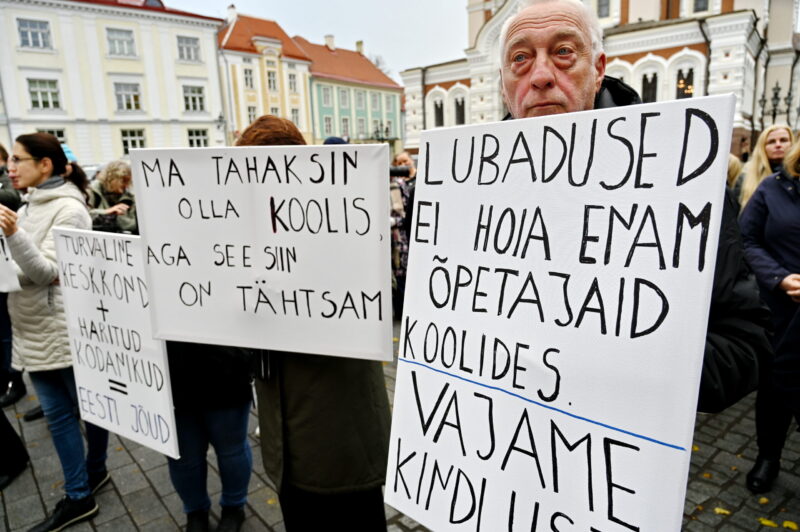 TURVALINE
KESKKOND
+
HARITUD
KODANIKUD
=
EESTI JÕUD
MA TAHAKSIN
OLLA KOOLIS,
AGA SEE SIIN
ON TÄHTSAM
LUBADUSED
EI HOIA ENAM
ÕPETAJAID
KOOLIDES.
VAJAME
KINDLUST